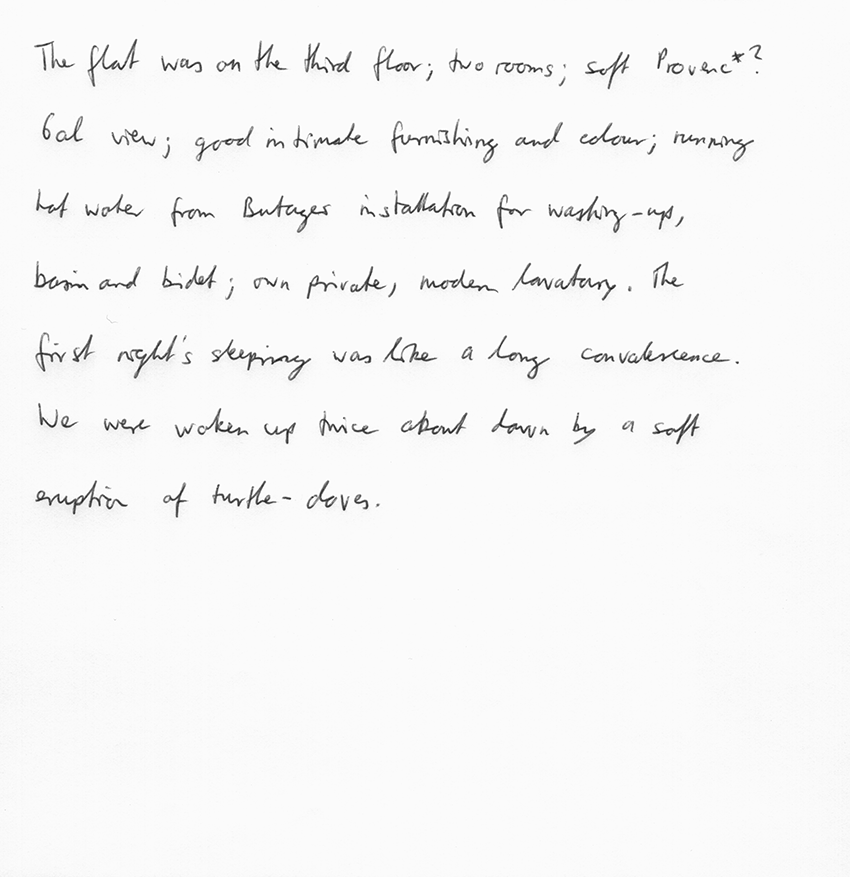 The flat was on the third floor; two rooms; soft Provenc*?
6al view; good intimate furnishing and colour; running
hot water from Butages installation for washing-up,
basin and bidet; own private, modern lavatary. The
first night's sleeping was like a long convalescence.
We were woken up twice about dawn by a soft
eruption of turtle-doves.